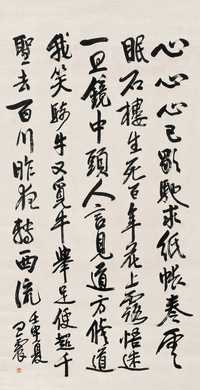 心心心已歇馳求紙帳卷雲
眠石樓生死百年花上露悟迷
一旦鏡中頭人言見道方修道
我笑騎牛又覓牛舉足便超千
聖去百川昨夜轉西流 壬申夏
震